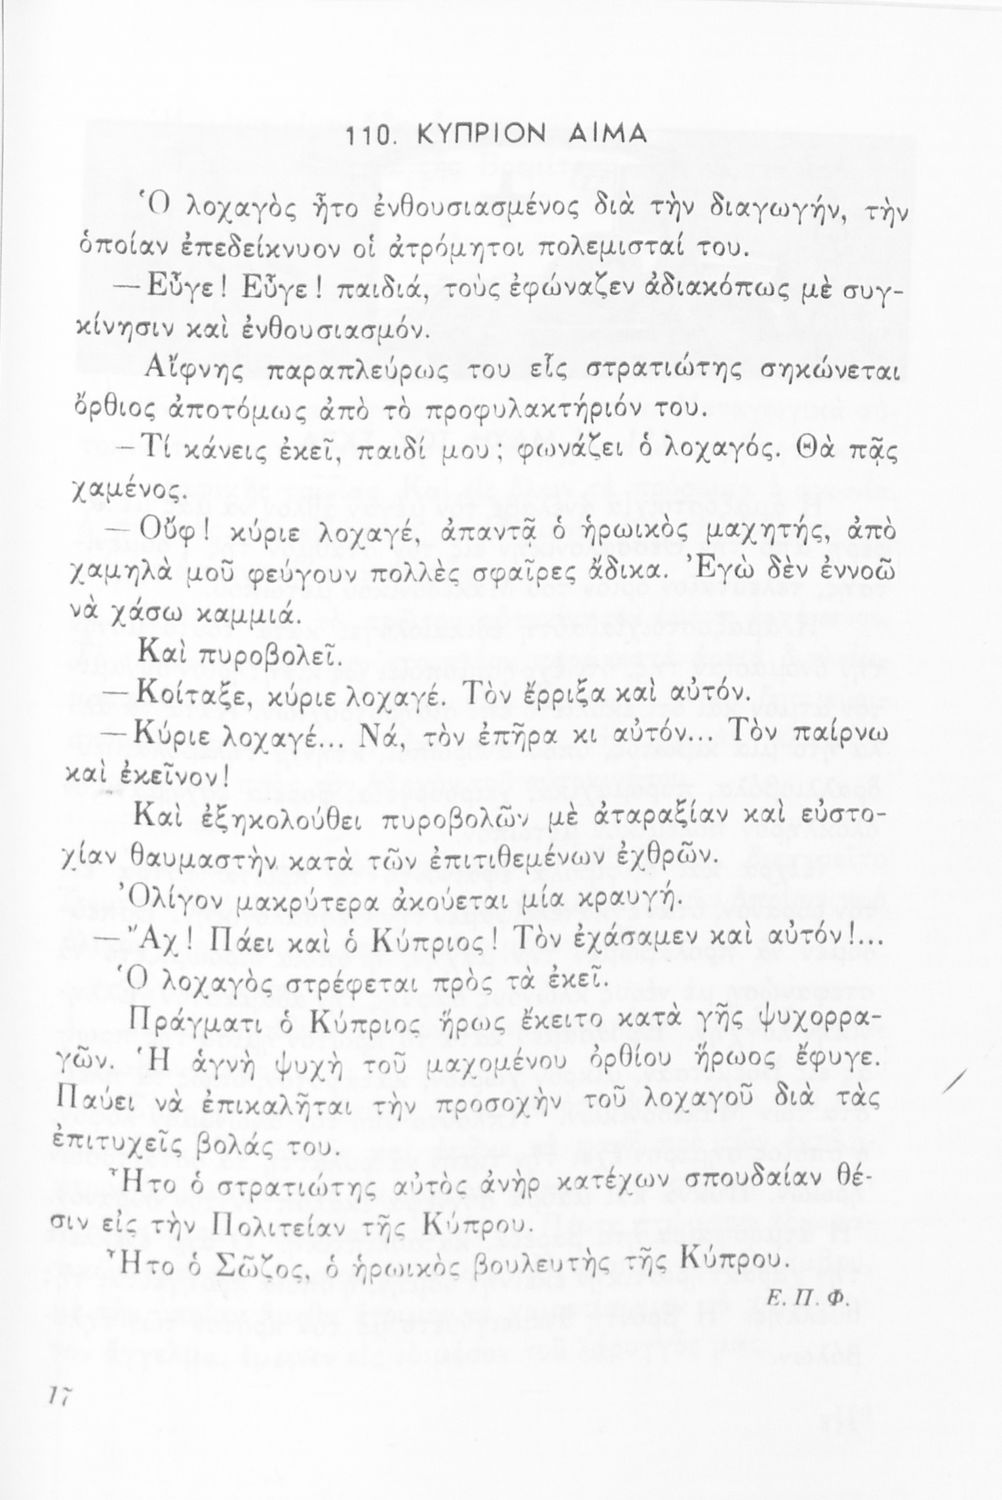 110. ΚΥΠΡΙΟΝ ΑΙΜΑ
Ὁ λοχαγὸς ἦτο ἐνθουσιασμένος διὰ τὴν διαγωγήν, τὴν
ὁποίαν ἐπεδείκνυον οἱ ἀτρόμητοι πολεμισταί του.
— Εὖγε! Εὖγε! παιδιά, τοὺς ἐφώναζεν ἀδιακόπως μὲ συγ-
κίνησιν καὶ ἐνθουσιασμόν.
Αἴφνης παραπλεύρως του εἷς στρατιώτης σηκώνεται
ὄρθιος ἀποτόμως ἀπὸ τὸ προφυλακτήριόν του.
— Τί κάνεις ἐκεῖ, παιδί μου; φωνάζει ὁ λοχαγός. Θὰ πᾷς
χαμένος.
— Οὔφ! κύριε λοχαγέ, ἀπαντᾷ ὁ ἡρωικὸς μαχητής, ἀπὸ
χαμηλὰ μοῦ φεύγουν πολλὲς σφαῖρες ἄδικα. Ἐγὼ δὲν ἐννοῶ
νὰ χάσω καμμιά.
Καὶ πυροβολεῖ.
— Κοίταξε, κύριε λοχαγέ. Τὸν ἔρριξα καὶ αὐτόν.
— Κύριε λοχαγέ... Νά, τὸν ἐπῆρα κι αὐτόν... Τὸν παίρνω
καὶ ἐκεῖνον!
Καὶ ἐξηκολούθει πυροβολῶν μὲ ἀταραξίαν καὶ εὐστο-
χίαν θαυμαστὴν κατὰ τῶν ἐπιτιθεμένων ἐχθρῶν.
Ὀλίγον μακρύτερα ἀκούεται μία κραυγή.
— Ἄχ! Πάει καὶ ὁ Κύπριος! Τὸν ἐχάσαμεν καὶ αὐτόν!...
Ὁ λοχαγὸς στρέφεται πρὸς τὰ ἐκεῖ.
Πράγματι ὁ Κύπριος ἥρως ἔκειτο κατὰ γῆς ψυχορρα-
γῶν. Ἡ ἁγνὴ ψυχὴ τοῦ μαχομένου ὀρθίου ἥρωος ἔφυγε.
Παύει νὰ ἐπικαλῆται τὴν προσοχὴν τοῦ λοχαγοῦ διὰ τὰς
ἐπιτυχεῖς βολάς του.
Ἦτο ὁ στρατιώτης αὐτὸς ἀνὴρ κατέχων σπουδαίαν θέ-
σιν εἰς τὴν Πολιτείαν τῆς Κύπρου.
Ἦτο ὁ Σῶζος, ὁ ἡρωικὸς βουλευτὴς τῆς Κύπρου.
Ε. Π. Φ.
17